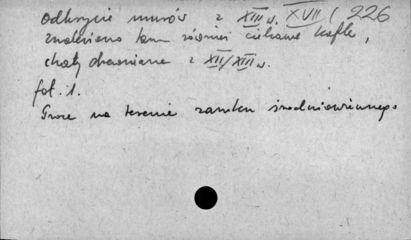 odkrycie murów z XIII w. XVII ( 226
znaleziono tam również ciekawe kafle,
chaty drewniane z XII/XIII w.
fot. 1.
Prace na terenie zamku średniowiecznego